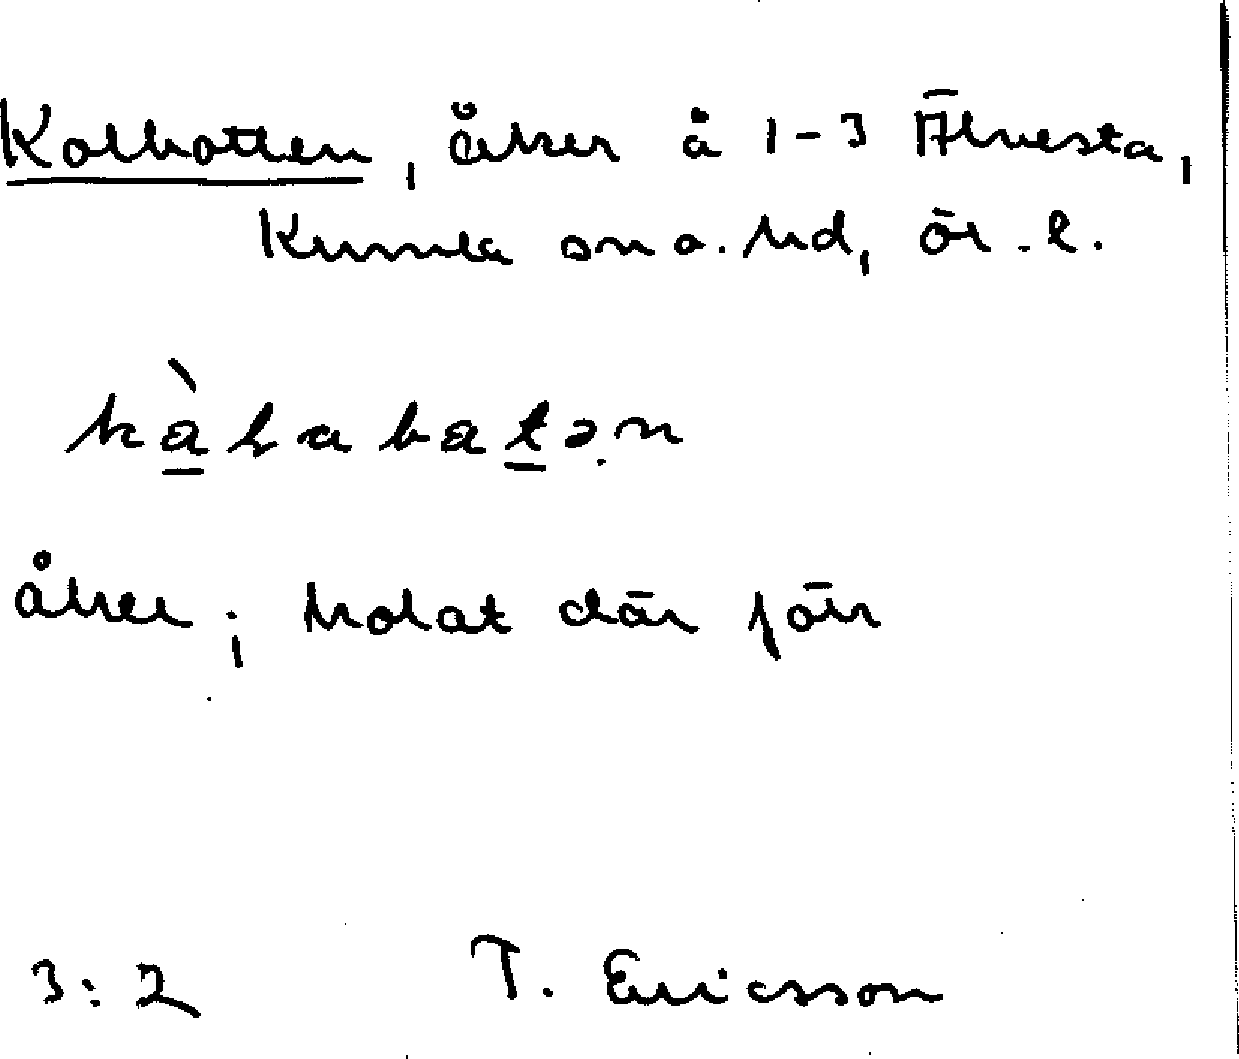 Kolbotten, åker å 1-3 Älvesta,
Kumla sn o. hd, ör. l.
kàlabatən
åker; kolat där förr
3:2 T. Ericsson